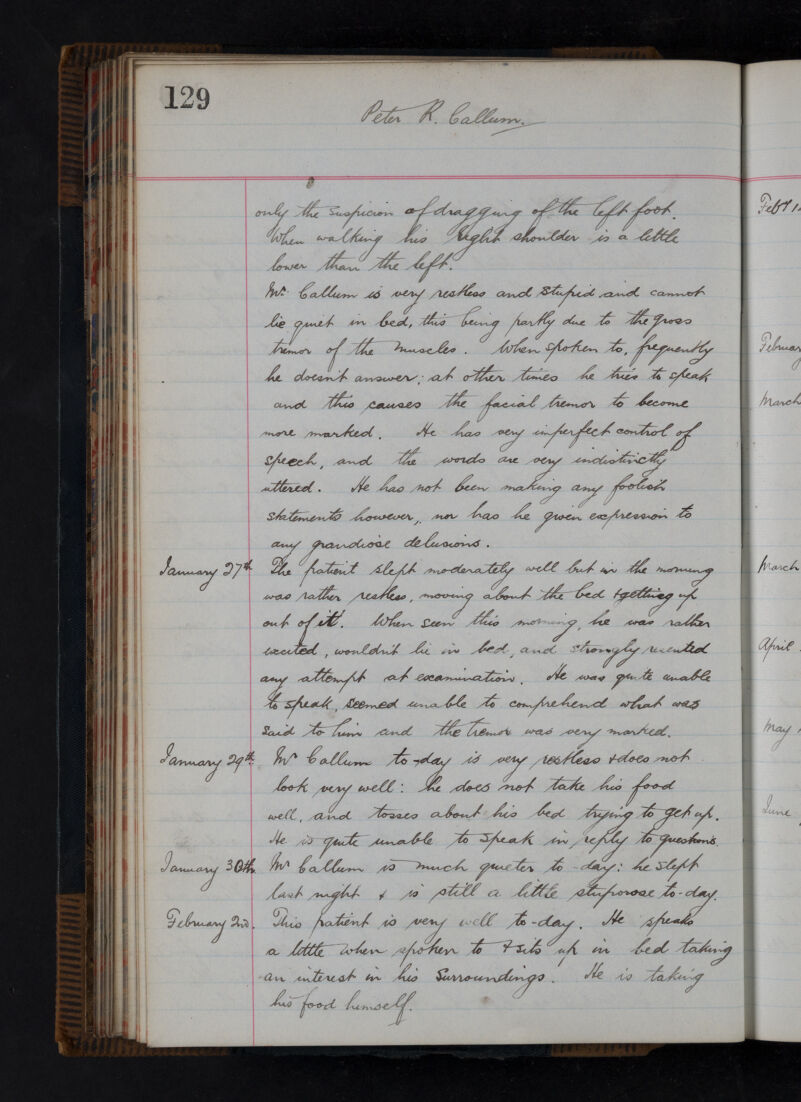 129
Peter R. Callum.
only the suspicion of dragging of the left foot.
When walking his right shoulder is a little
lower than the left.
Mr. Callum is very restless and stupid and cannot
lie quiet in bed, this being partly due to the gross
tremor of the muscles. When spoken to, frequently
he doesn't answer; at other times he tries to speak
and this causes the facial tremor to become
more marked. He has very imperfect control of
speech, and the words are very indistinctly
uttered. He has not been making any foolish
statements however, nor has he given expression to
any grandiose delusions.
January 27th The patient slept moderately well but in the morning
was rather restless, moving about the bed & getting up
out of it. When seen this morning, he was rather
excited, wouldn't lie in bed, and strongly resented
any attempt at examination. He was quite unable
to speak, seemed unable to comprehend what was
said to him and the tremor was very marked.
January 29th. Mr Callum to-day is very restless & does not
look very well: he does not take his food
well, and tosses about his bed trying to get up.
He is quite unable to speak in reply to questions.
January 30th Mr Callum is much quieter to-day: he slept
last night & is still a little stuporose to-day.
February 2nd. This patient is very well to-day. He speaks
a little when spoken to & sits up in bed taking
an interest in his surroundings. He is taking
his food himself.
Feby 1
Februar
March
March
April
May
June